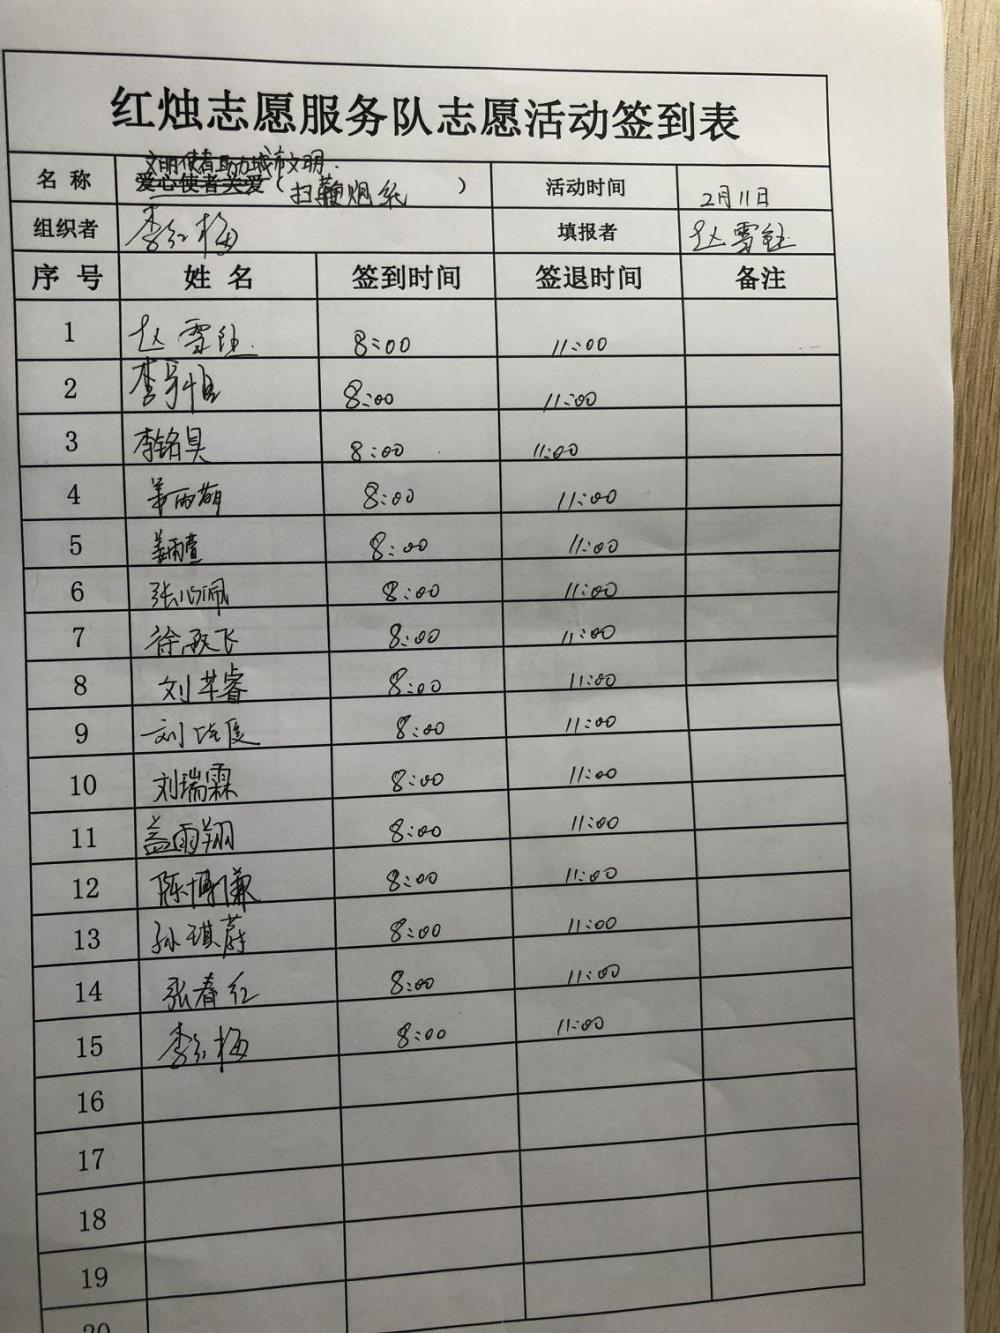 红烛志愿服务队志愿活动签到表
文明使者助力城市文明.
名 称 爱心使者关爱( 扫鞭炮 ) 活动时间 2月11日
组织者 李红梅 填报者 赵雪钰
序 号 姓 名 签到时间 签退时间 备注
1 赵雪钰 8:00 11:00
2 李 8:00 11:00
3 李铭昊 8:00 11:00
4 姜雨萌 8:00 11:00
5 姜雨萱 8:00 11:00
6 张心佩 8:00 11:00
7 徐 飞 8:00 11:00
8 刘芊睿 8:00 11:00
9 刘 8:00 11:00
10 刘瑞霖 8:00 11:00
11 益雨翔 8:00 11:00
12 陈博谦 8:00 11:00
13 孙琪蔚 8:00 11:00
14 张春红 8:00 11:00
15 李红梅 8:00 11:00
16
17
18
19
20